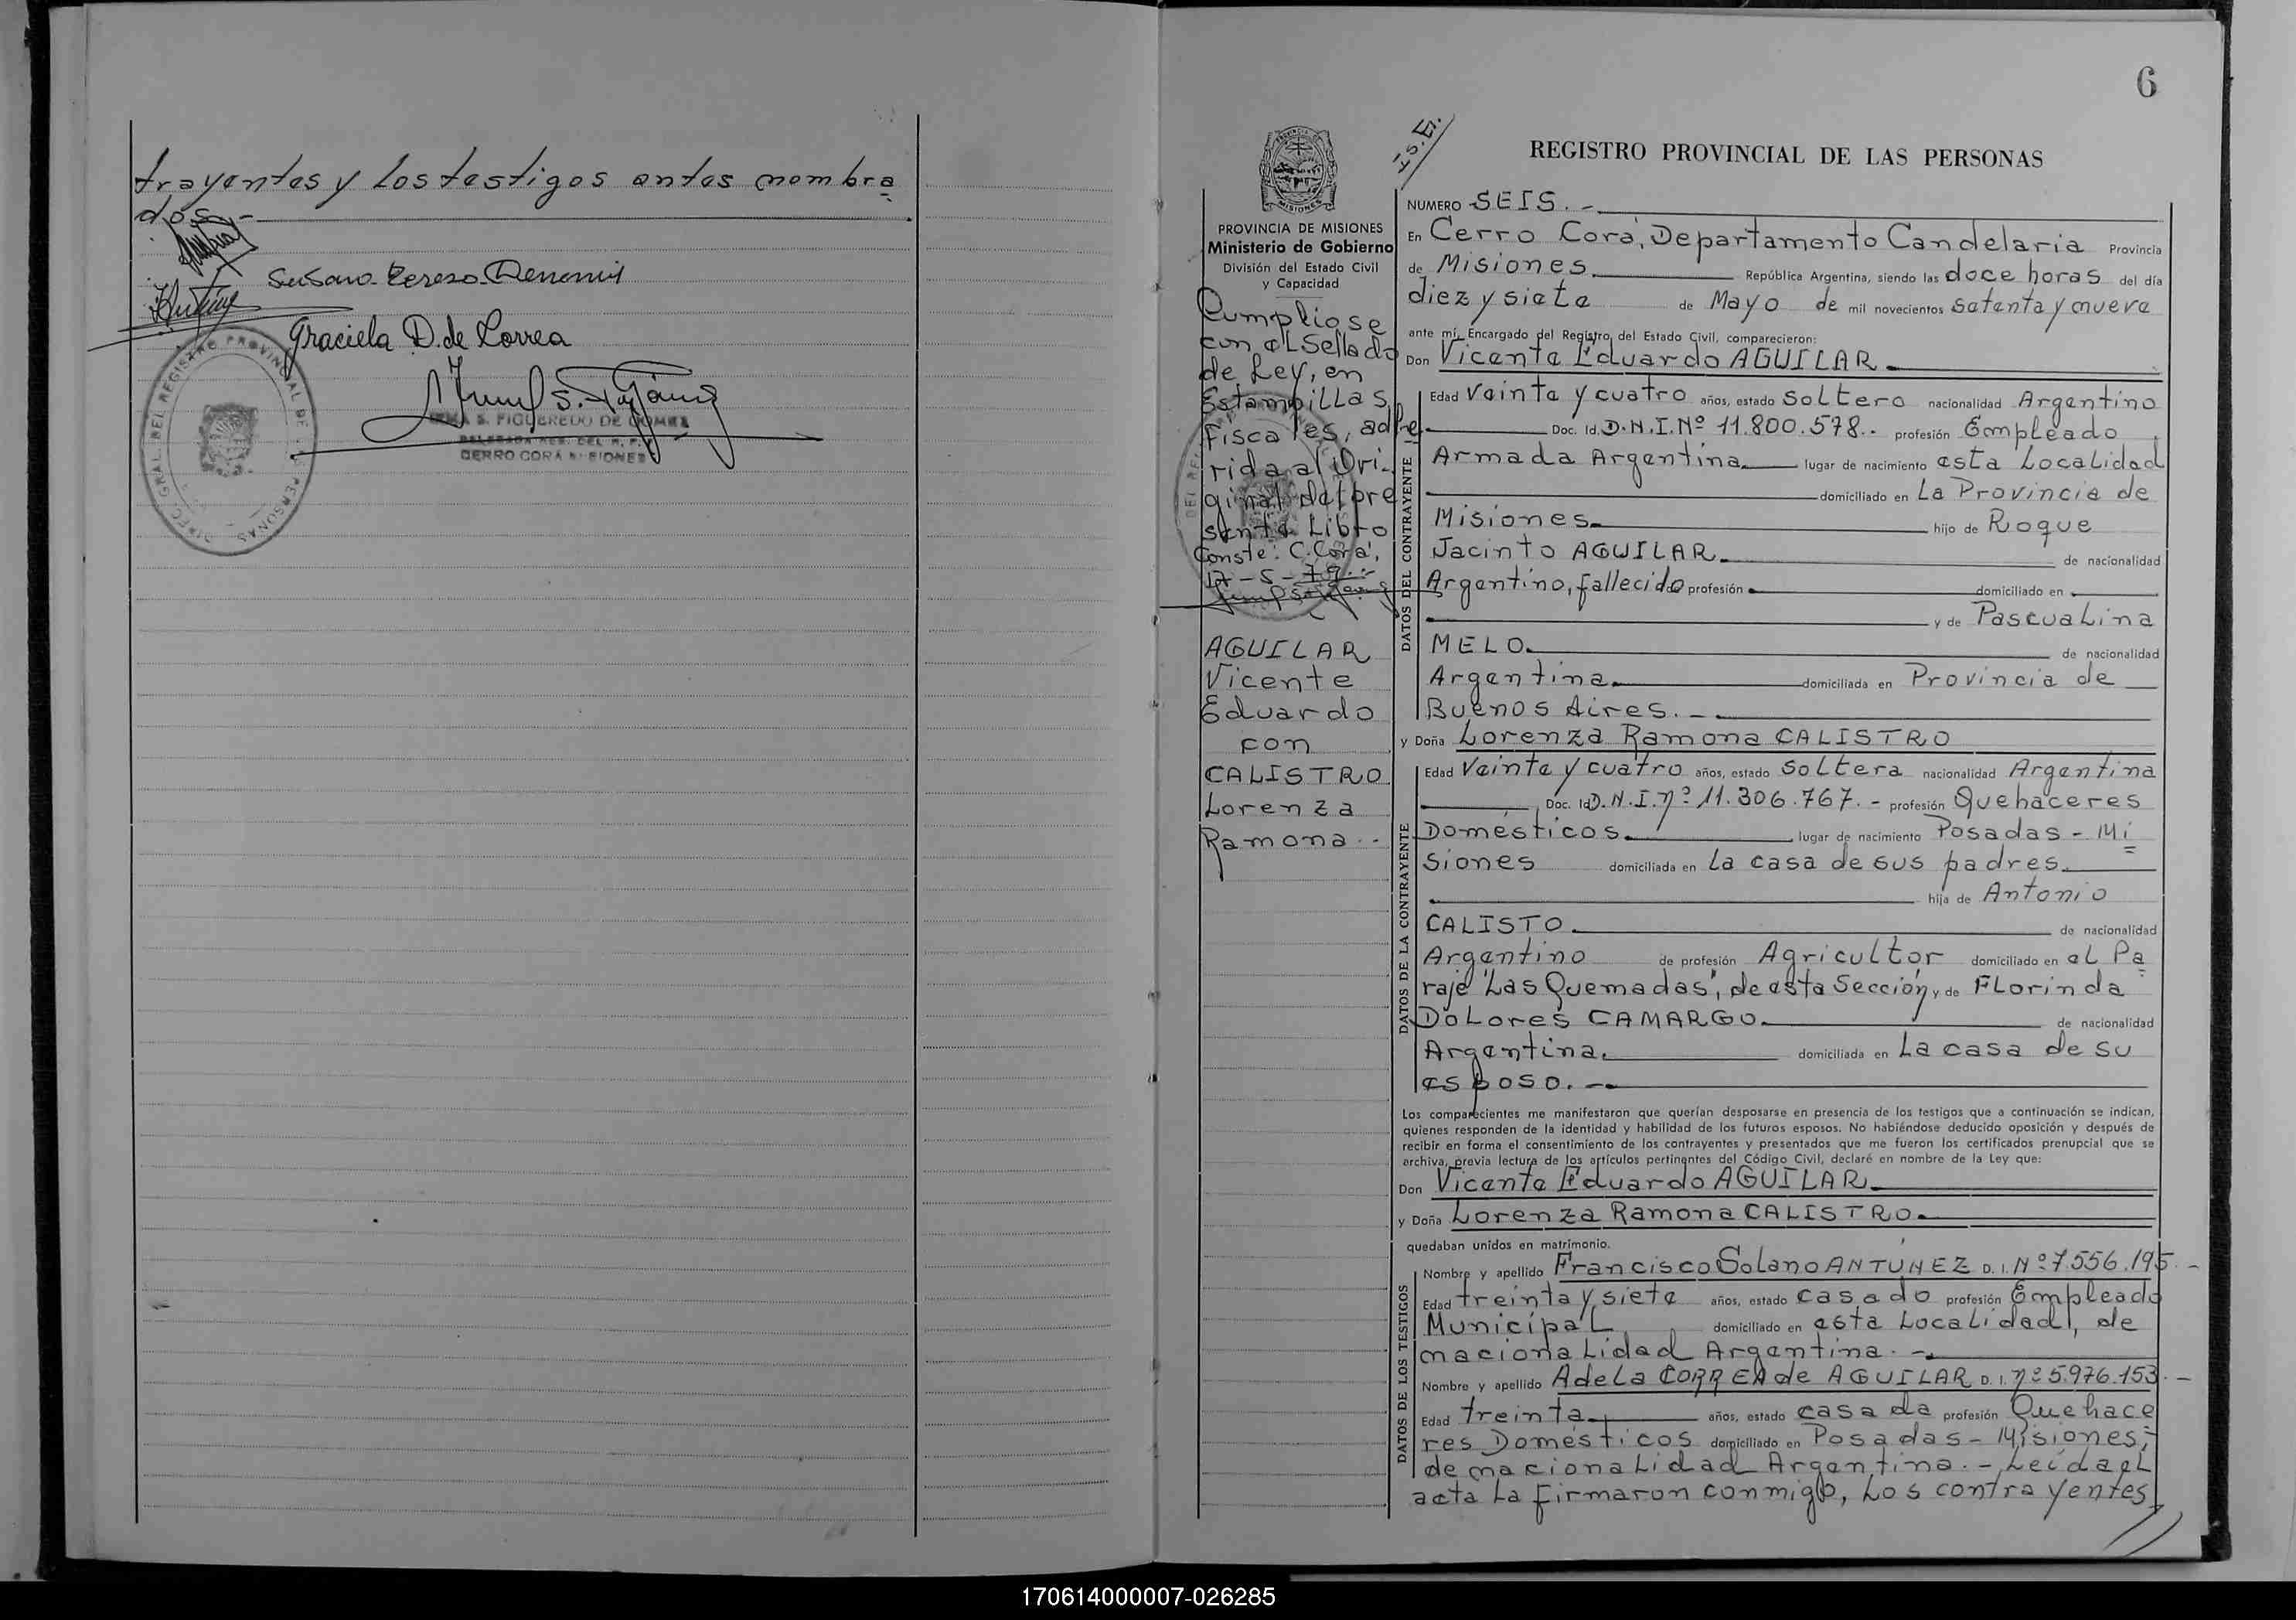 trayentes y los testigos antes nombra
dos.-
Susana Teresa
Graciela D. de Correa
IRMA S. FIGUEREDO DE GOMEZ
CERRO CORA MISIONES
DIREC. GRAL. DEL REGISTRO PROVINCIAL DE LAS PERSONAS
6
PROVINCIA DE MISIONES
Ministerio de Gobierno
División del Estado Civil
y Capacidad
Cumpliose
con el Sellado
de Ley, en
Estampillas
Fiscales, adhe
rida al Ori-
ginal del pre
sente Libro
Conste: C. Corá,
17-5-79.-
AGUILAR
Vicente
Eduardo
con
CALISTRO
Lorenza
Ramona.-
REGISTRO PROVINCIAL DE LAS PERSONAS
NUMERO SEIS.-
En Cerro Corá, Departamento Candelaria Provincia
de Misiones República Argentina, siendo las doce horas del día
diez y siete de Mayo de mil novecientos setenta y nueve
ante mí, Encargado del Registro del Estado Civil, comparecieron:
Don Vicente Eduardo AGUILAR
DATOS DEL CONTRAYENTE
Edad Veinte y cuatro años, estado Soltero nacionalidad Argentino
Doc. Id. D.N.I. Nº 11.800.578.. profesión Empleado
Armada Argentina lugar de nacimiento esta Localidad
domiciliado en La Provincia de
Misiones hijo de Roque
Jacinto AGUILAR de nacionalidad
Argentino, fallecido profesión domiciliado en
y de Pascualina
MELO de nacionalidad
Argentina domiciliada en Provincia de
Buenos Aires.-
y Doña Lorenza Ramona CALISTRO
DATOS DE LA CONTRAYENTE
Edad Veinte y cuatro años, estado Soltera nacionalidad Argentina
Doc. Id D.N.I. nº 11.306.767.- profesión Quehaceres
Domésticos lugar de nacimiento Posadas - Mi
siones domiciliada en La casa de sus padres
hija de Antonio
CALISTO de nacionalidad
Argentino de profesión Agricultor domiciliado en el Pa
raje "Las Quemadas", de esta Sección y de Florinda
Dolores CAMARGO de nacionalidad
Argentina. domiciliada en La casa de su
esposo.-
Los comparecientes me manifestaron que querían desposarse en presencia de los testigos que a continuación se indican,
quienes responden de la identidad y habilidad de los futuros esposos. No habiéndose deducido oposición y después de
recibir en forma el consentimiento de los contrayentes y presentados que me fueron los certificados prenupcial que se
archiva, previa lectura de los artículos pertinentes del Código Civil, declaré en nombre de la Ley que:
Don Vicente Eduardo AGUILAR
y Doña Lorenza Ramona CALISTRO
quedaban unidos en matrimonio.
DATOS DE LOS TESTIGOS
Nombre y apellido Francisco Solano ANTÚNEZ D. I. Nº 7.556.195.-
Edad treinta y siete años, estado casado profesión Empleado
Municipal domiciliado en esta Localidad, de
nacionalidad Argentina.-
Nombre y apellido Adela CORREA de AGUILAR D. I. nº 5.976.153.-
Edad treinta años, estado casada profesión Quehace
res Domésticos domiciliado en Posadas - Misiones,
de nacionalidad Argentina.- Leída el
acta la firmaron conmigo, los contrayentes
170614000007-026285